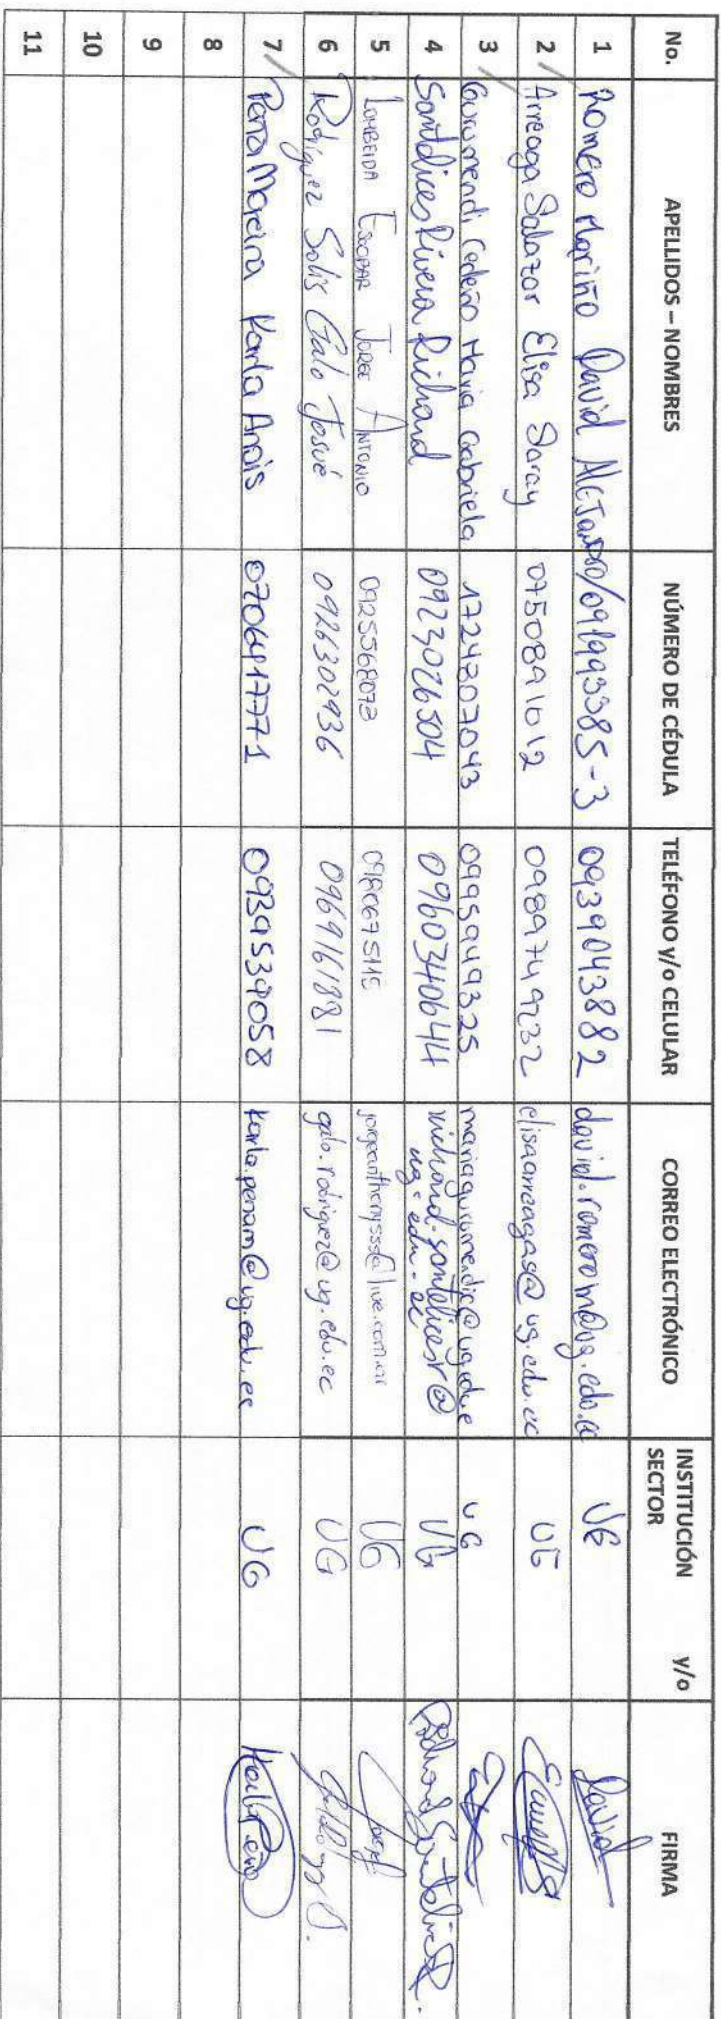 No. APELLIDOS – NOMBRES NÚMERO DE CÉDULA TELÉFONO y/o CELULAR CORREO ELECTRÓNICO INSTITUCIÓN y/o SECTOR FIRMA
1 Romero Mariño David Alejandro/091993385-3 0939043882 david.romerom@ug.edu.ec UG David
2 Arreaga Salazar Elisa Saray 0750891012 0989749232 elisaarreagas@ug.edu.ec UG
3 Gurumendi Cedeño Maria Gabriela 1724307043 0995949325 mariagurumendic@ug.edu.e UG
4 Santelices Rivera Richard 0923026504 0960340644 richard.santelicesr@ UG Richard Santelices R.
ug.edu.ec
5 LOMBEIDA ESCOBAR JORGE ANTONIO 0925568073 0980675115 jorgeanthonysss@live.com.ar UG Jorge
6 Rodríguez Solis Galo Josué 0926302936 0969161881 galo.rodriguez@ug.edu.ec UG
7 Peña Moreira Karla Anais 0706417771 0939539058 karla.penam@ug.edu.ec UG Karla Peña
8
9
10
11